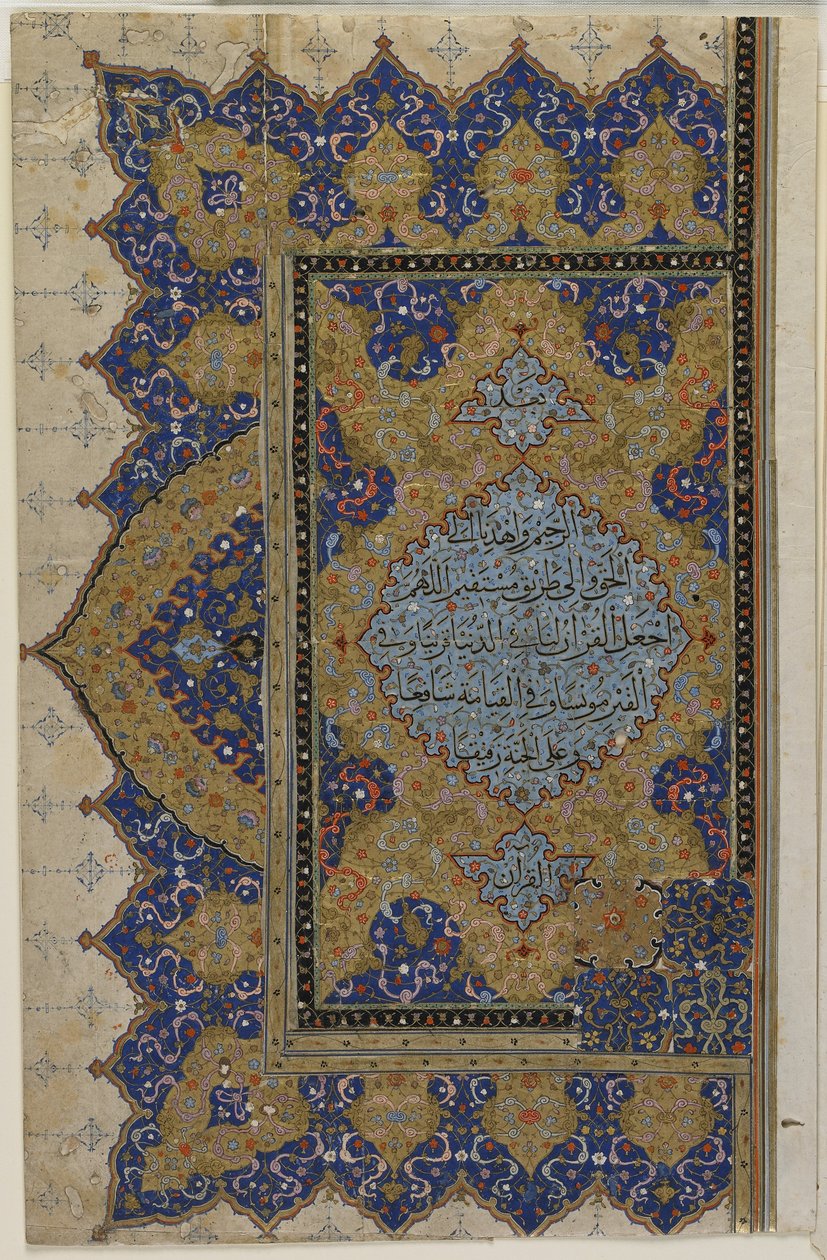 بعد
الرحيم واهدنا الى
الحق والى طريق مستقيم اللهم
اجعل القرآن لنا في الدنيا قرينا وفي
القبر مونسا وفي القيامة شافعا
وعلى الجنة رفيقا
القرآن